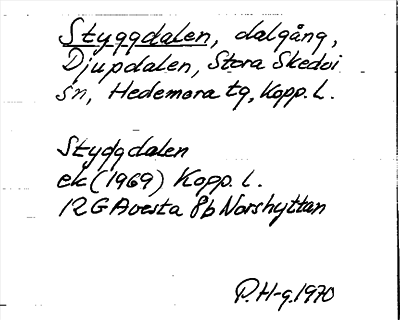 Styggdalen, dalgång,
Djupdalen, Stora Skedvi
sn, Hedemora tg, Kopp. L.
Styggdalen
ek (1969) Kopp. l.
12G Avesta 8b Norshyttan
P.H-g.1970